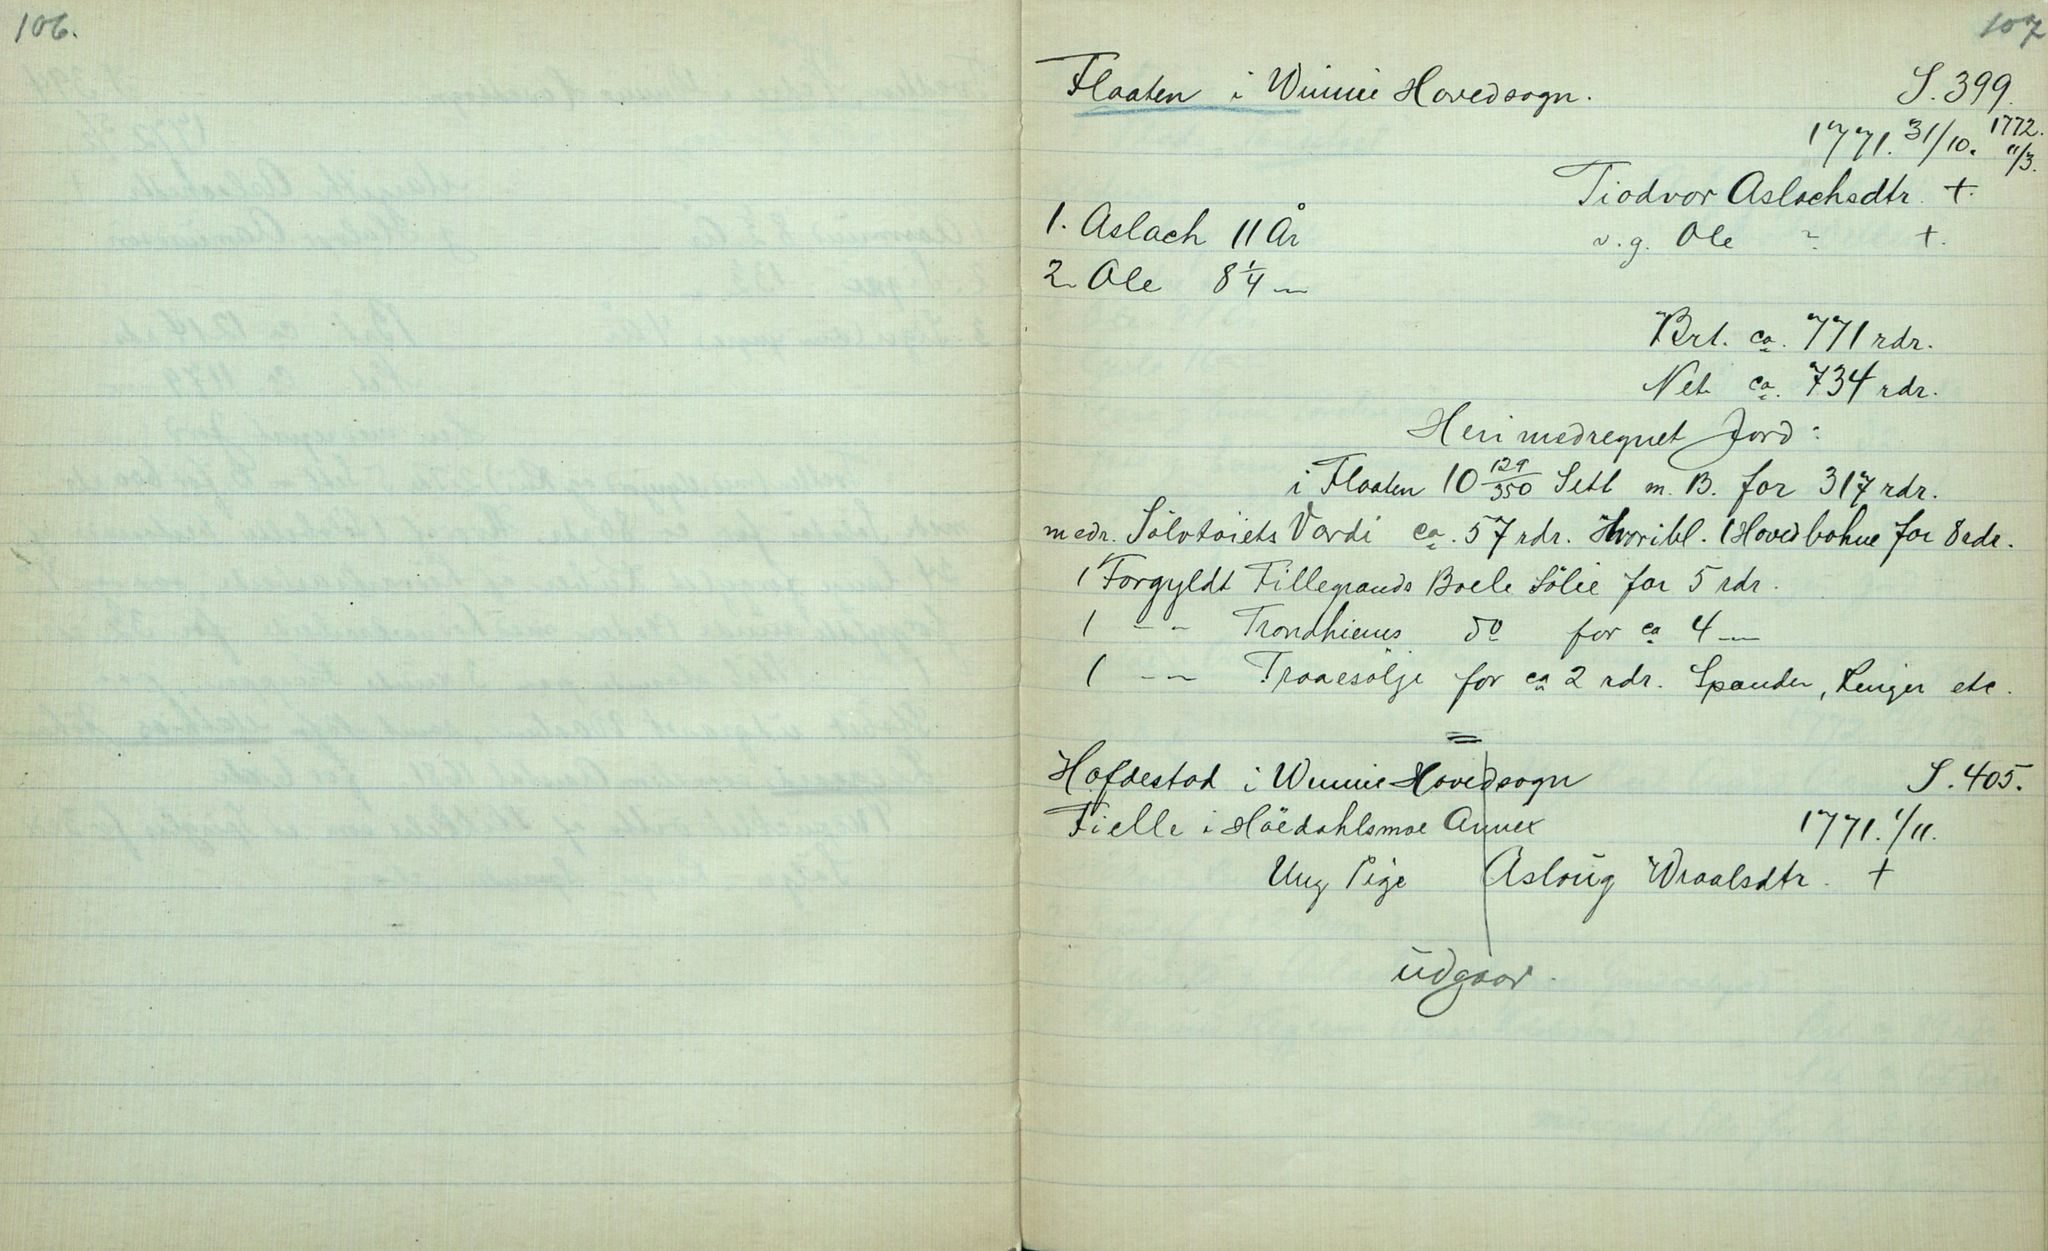 106.
107
Flaaten i Winnie Hovedsogn. S. 399.
1771. 31/10. 1772. 11/3.
Tiodvor Aslachsdtr. +.
1. Aslach 11 År v. g. Ole ~ +.
2. Ole 8 1/4 —
Brt. ca. 771 rdr.
Net. ca. 734 rdr.
Heri medregnet Jord:
i Flaaten 10 129/350 Setl m. B. for 317 rdr.
medr. Sölvtöiets Værdi ca. 57 rdr. Hvoribl. 1 Hovedbohne for 8 rdr.
1 Forgyldt Fillegrands Boele Sölie for 5 rdr.
1 -- Trondhiems do for ca 4 —
1 -- Traaesölje for ca 2 rdr. Spænder, Ringer etc.
Hafdestad i Winnie Hovedsogn S. 405.
Fielle i Höedahlsmoe Annex 1771. 1/11.
Ung Pige Aslaug Wraalsdtr. +
udgaar.